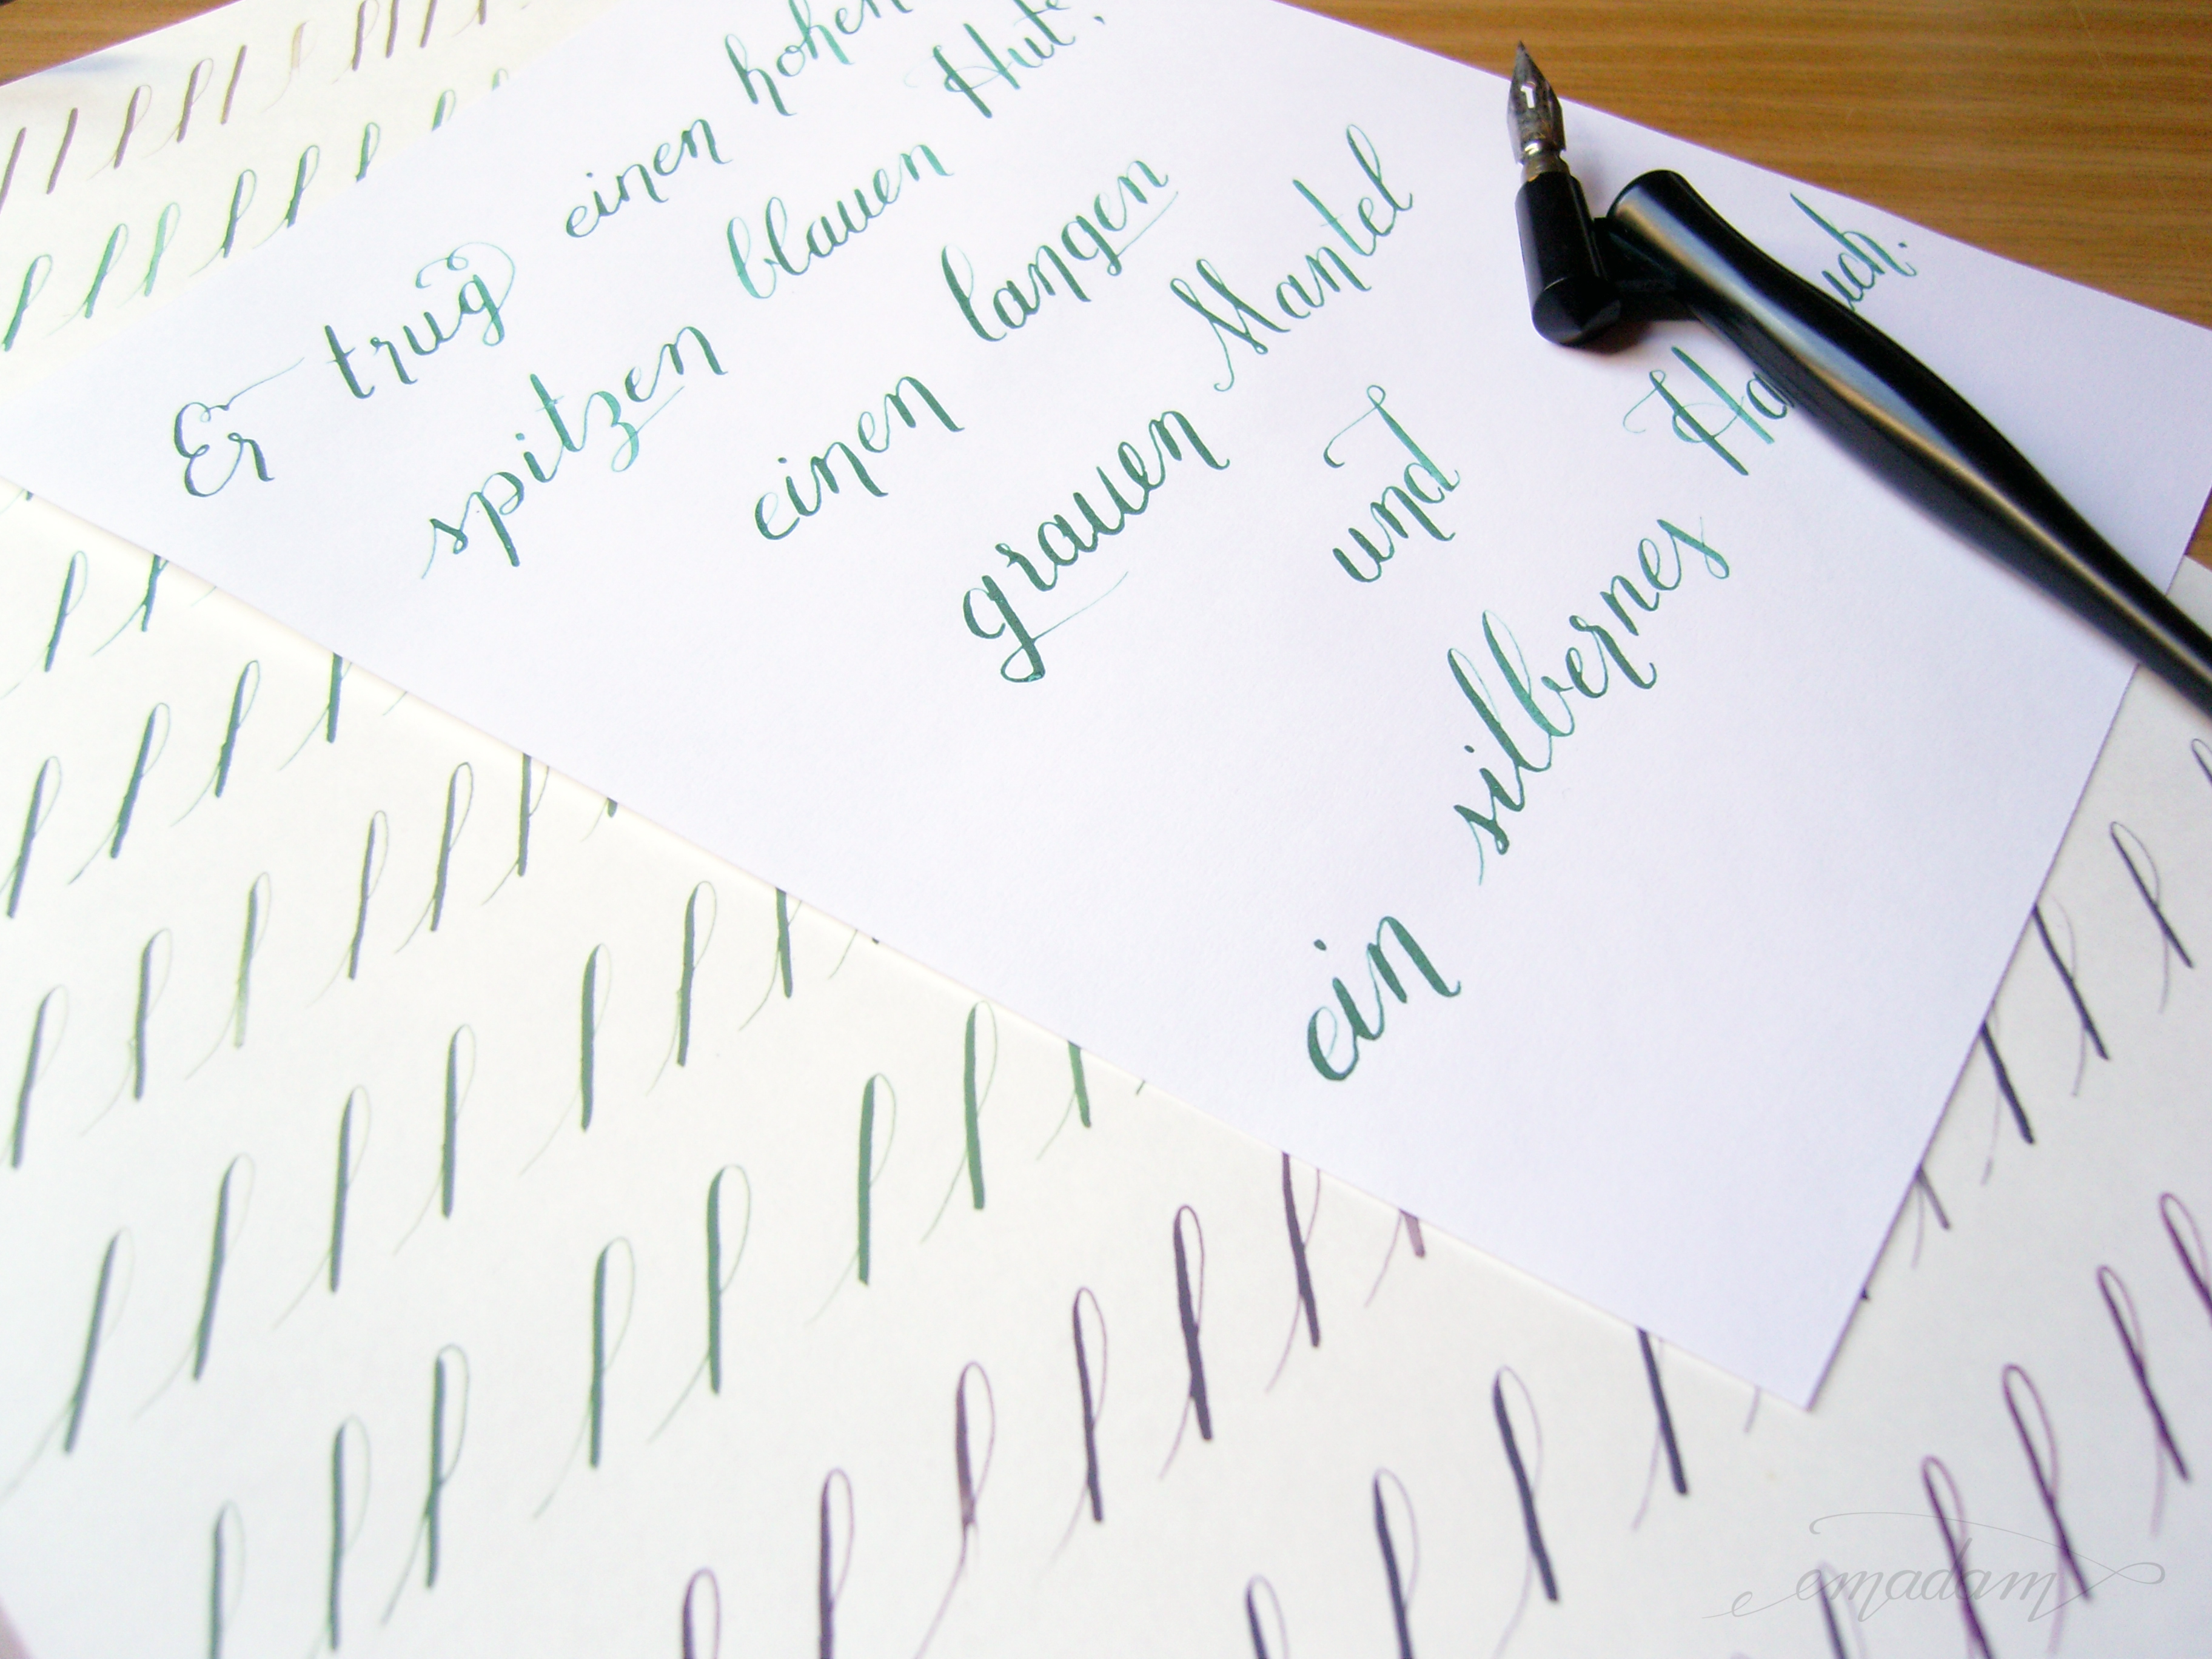 Er trug einen hohen
spitzen blauen Hut,
einen langen
grauen Mantel
und
ein silbernes
emadam